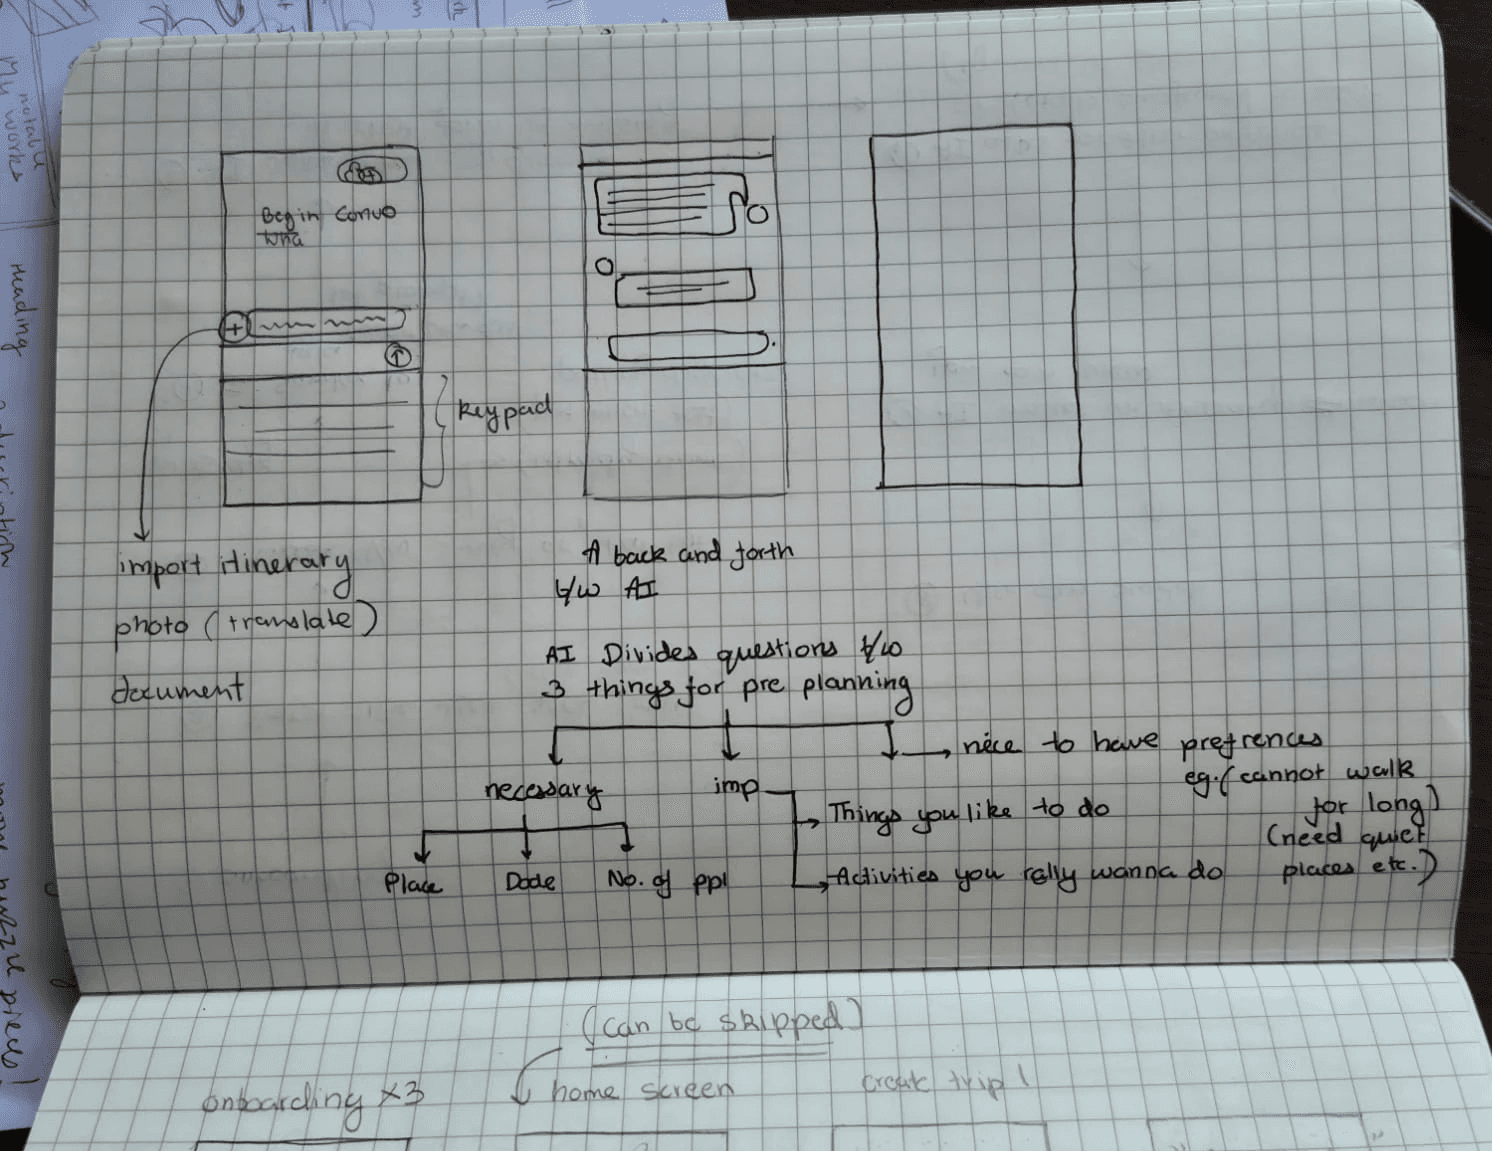 Begin Convo
Wha
+
keypad
import itinerary
photo (translate)
document
A back and forth
b/w AI
AI Divides questions b/w
3 things for pre planning
necessary
imp
nice to have prefrences
eg. (cannot walk
for long)
(need quiet
places etc.)
Things you like to do
Activities you rally wanna do
Place
Date
No. of ppl
(can be skipped)
onboarding x3
home screen
create trip 1
notable
My works
Heading
description
puzzle pieces!